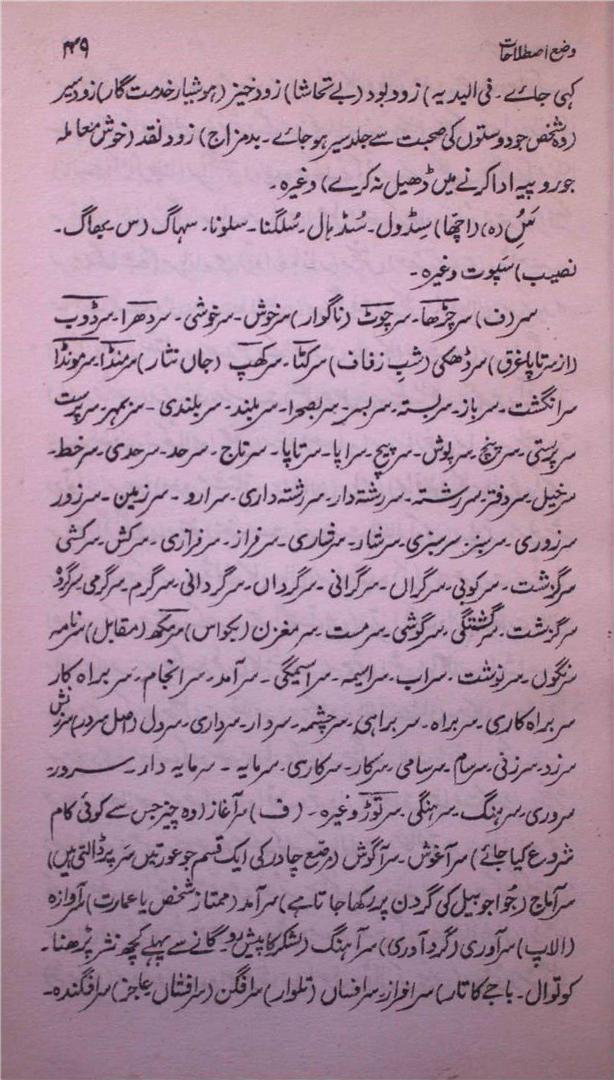 وضع اصطلاحات ۴۴۹
کہی جائے۔ فی البدیہ) زود بود (بے تحاشا) زود خیز (ہوشیار خدمت گار) زود سیر
(وہ شخص جو دوستوں کی صحبت سے جلد سیر ہو جائے۔ بد مزاج) زود نقد (خوش معاملہ
جو روپیہ ادا کرنے میں ڈھیل نہ کرے) وغیرہ۔
سُ (ہ) (اچھا) سڈول۔ سُڈھال۔ سُلگنا۔ سلونا۔ سہاگ (س۔ بھاگ۔
نصیب) سَپوت وغیرہ۔
سر (ف) سر چڑھا۔ سر چوٹ (ناگوار) سر خوش۔ سر خوشی۔ سر دھرا۔ سر ڈوب
(از سر تا پا غرق) سر ڈھکی (شب زفاف) سر کٹا۔ سر کھپ (جاں نثار) سر منڈا۔ سر مونڈا
سر انگشت۔ سر باز۔ سر بستہ۔ سر بسر۔ سر بصحرا۔ سر بلند۔ سر بلندی۔ سر بمہر۔ سر پرست
سر پرستی۔ سر پنچ۔ سر پوش۔ سر پیچ۔ سراپا۔ سر تا پا۔ سر تاج۔ سرحد۔ سرحدی۔ سر خط۔
سر خیل۔ سر دفتر۔ سر رشتہ۔ سر رشتہ دار۔ سر رشتہ داری۔ سر ارو۔ سر زمین۔ سر زور
سر زوری۔ سر سبز۔ سر سبزی۔ سر شار۔ سر شاری۔ سر فراز۔ سر فرازی۔ سر کش۔ سر کشی
سر گزشت۔ سر کوبی۔ سر گراں۔ سر گرانی۔ سر گرداں۔ سر گردانی۔ سر گرم۔ سر گرمی۔
سر گزشت۔ سر گشتگی۔ سر گوشی۔ سر مست۔ سر مغزن (بکواس) سر مکھ (مقابل) سر نامہ
سر نگوں۔ سر نوشت۔ سراب۔ سراسیمہ۔ سراسیمگی۔ سر آمد۔ سر انجام۔ سر براہ کار
سر براہ کاری۔ سر براہ۔ سر براہی۔ سر چشمہ۔ سردار۔ سرداری۔ سر دل (اصل سر در) سرزنش
سر زد۔ سر زنی۔ سرسام۔ سرسامی۔ سرکار۔ سرکاری۔ سرمایہ۔ سرمایہ دار۔ سرور۔
سروری۔ سر ہنگ۔ سر ہنگی۔ سر توڑ وغیرہ۔ (ف) سر آغاز (وہ چیز جس سے کوئی کام
شروع کیا جائے) سر آغوش۔ سر آگوش (وضع چادر کی ایک قسم جو عورتیں سر پر ڈالتی ہیں)
سر آماج (جوا جو بیل کی گردن پر رکھا جاتا ہے) سر آمد (ممتاز شخص یا عبارت) سر آوازہ
(الاپ) سر آوری (گرد آوری) سر آہنگ (لشکر کا پیش رو۔ گانے سے پہلے کچھ نثر پڑھنا۔
کوتوال۔ باجے کا تار) سر افراز۔ سر افساں (تلوار) سر افگن (سر افشاں۔ عاجز) سر افگندہ۔